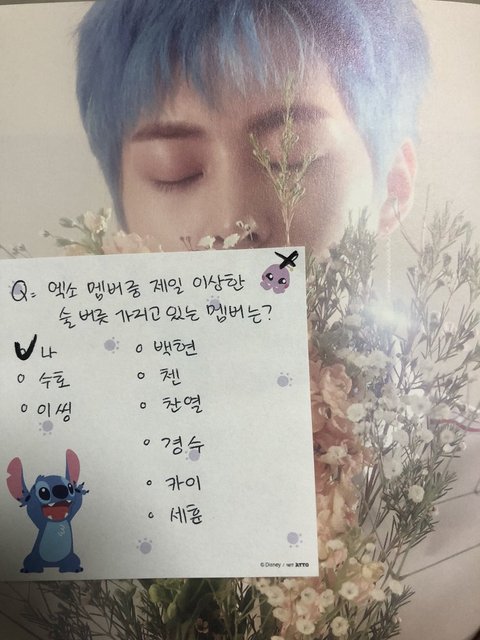 Q: 엑소 멤버중 제일 이상한
술 버릇 가지고 있는 멤버는?
나
수호
이씽
백현
첸
찬열
경수
카이
세훈
© Disney / NFT ATTO